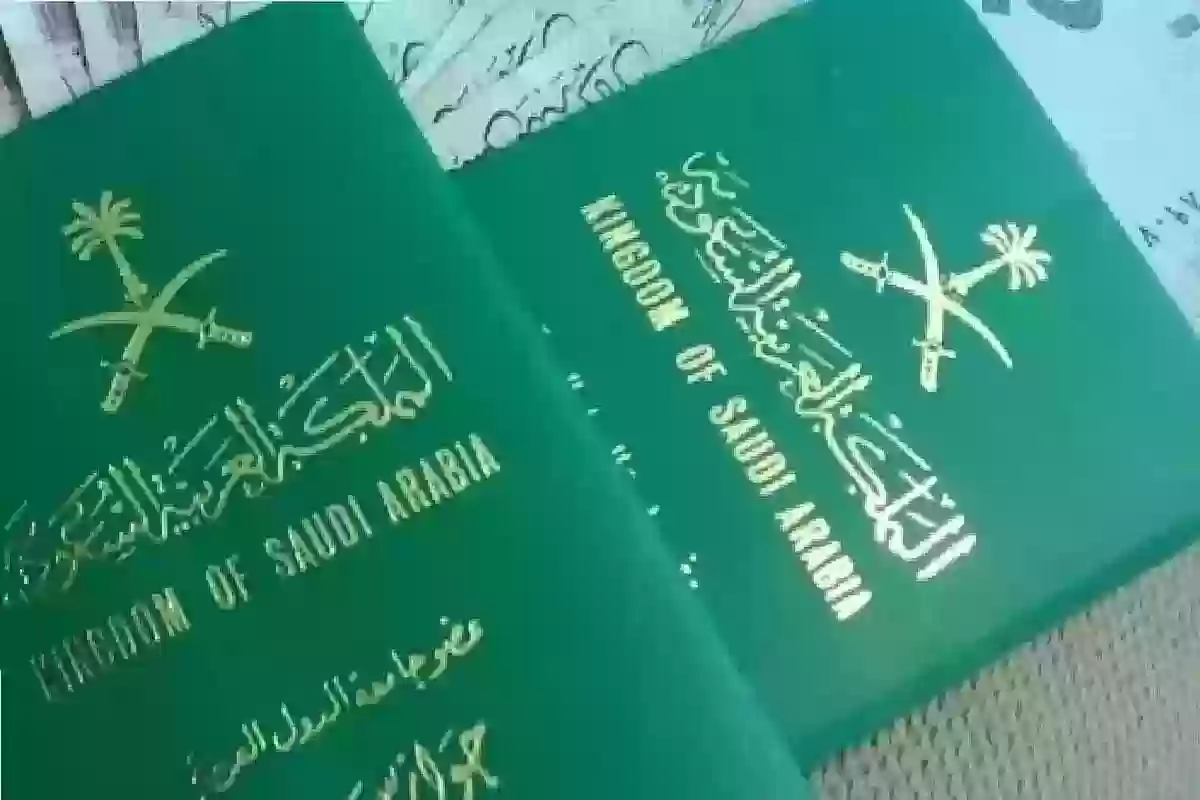 المملكة العربية السعودية
KINGDOM OF SAUDI ARABIA
عضو جامعة الدول العربية
جواز
المملكة العربية السعودية
KINGDOM OF SAUDI ARABIA